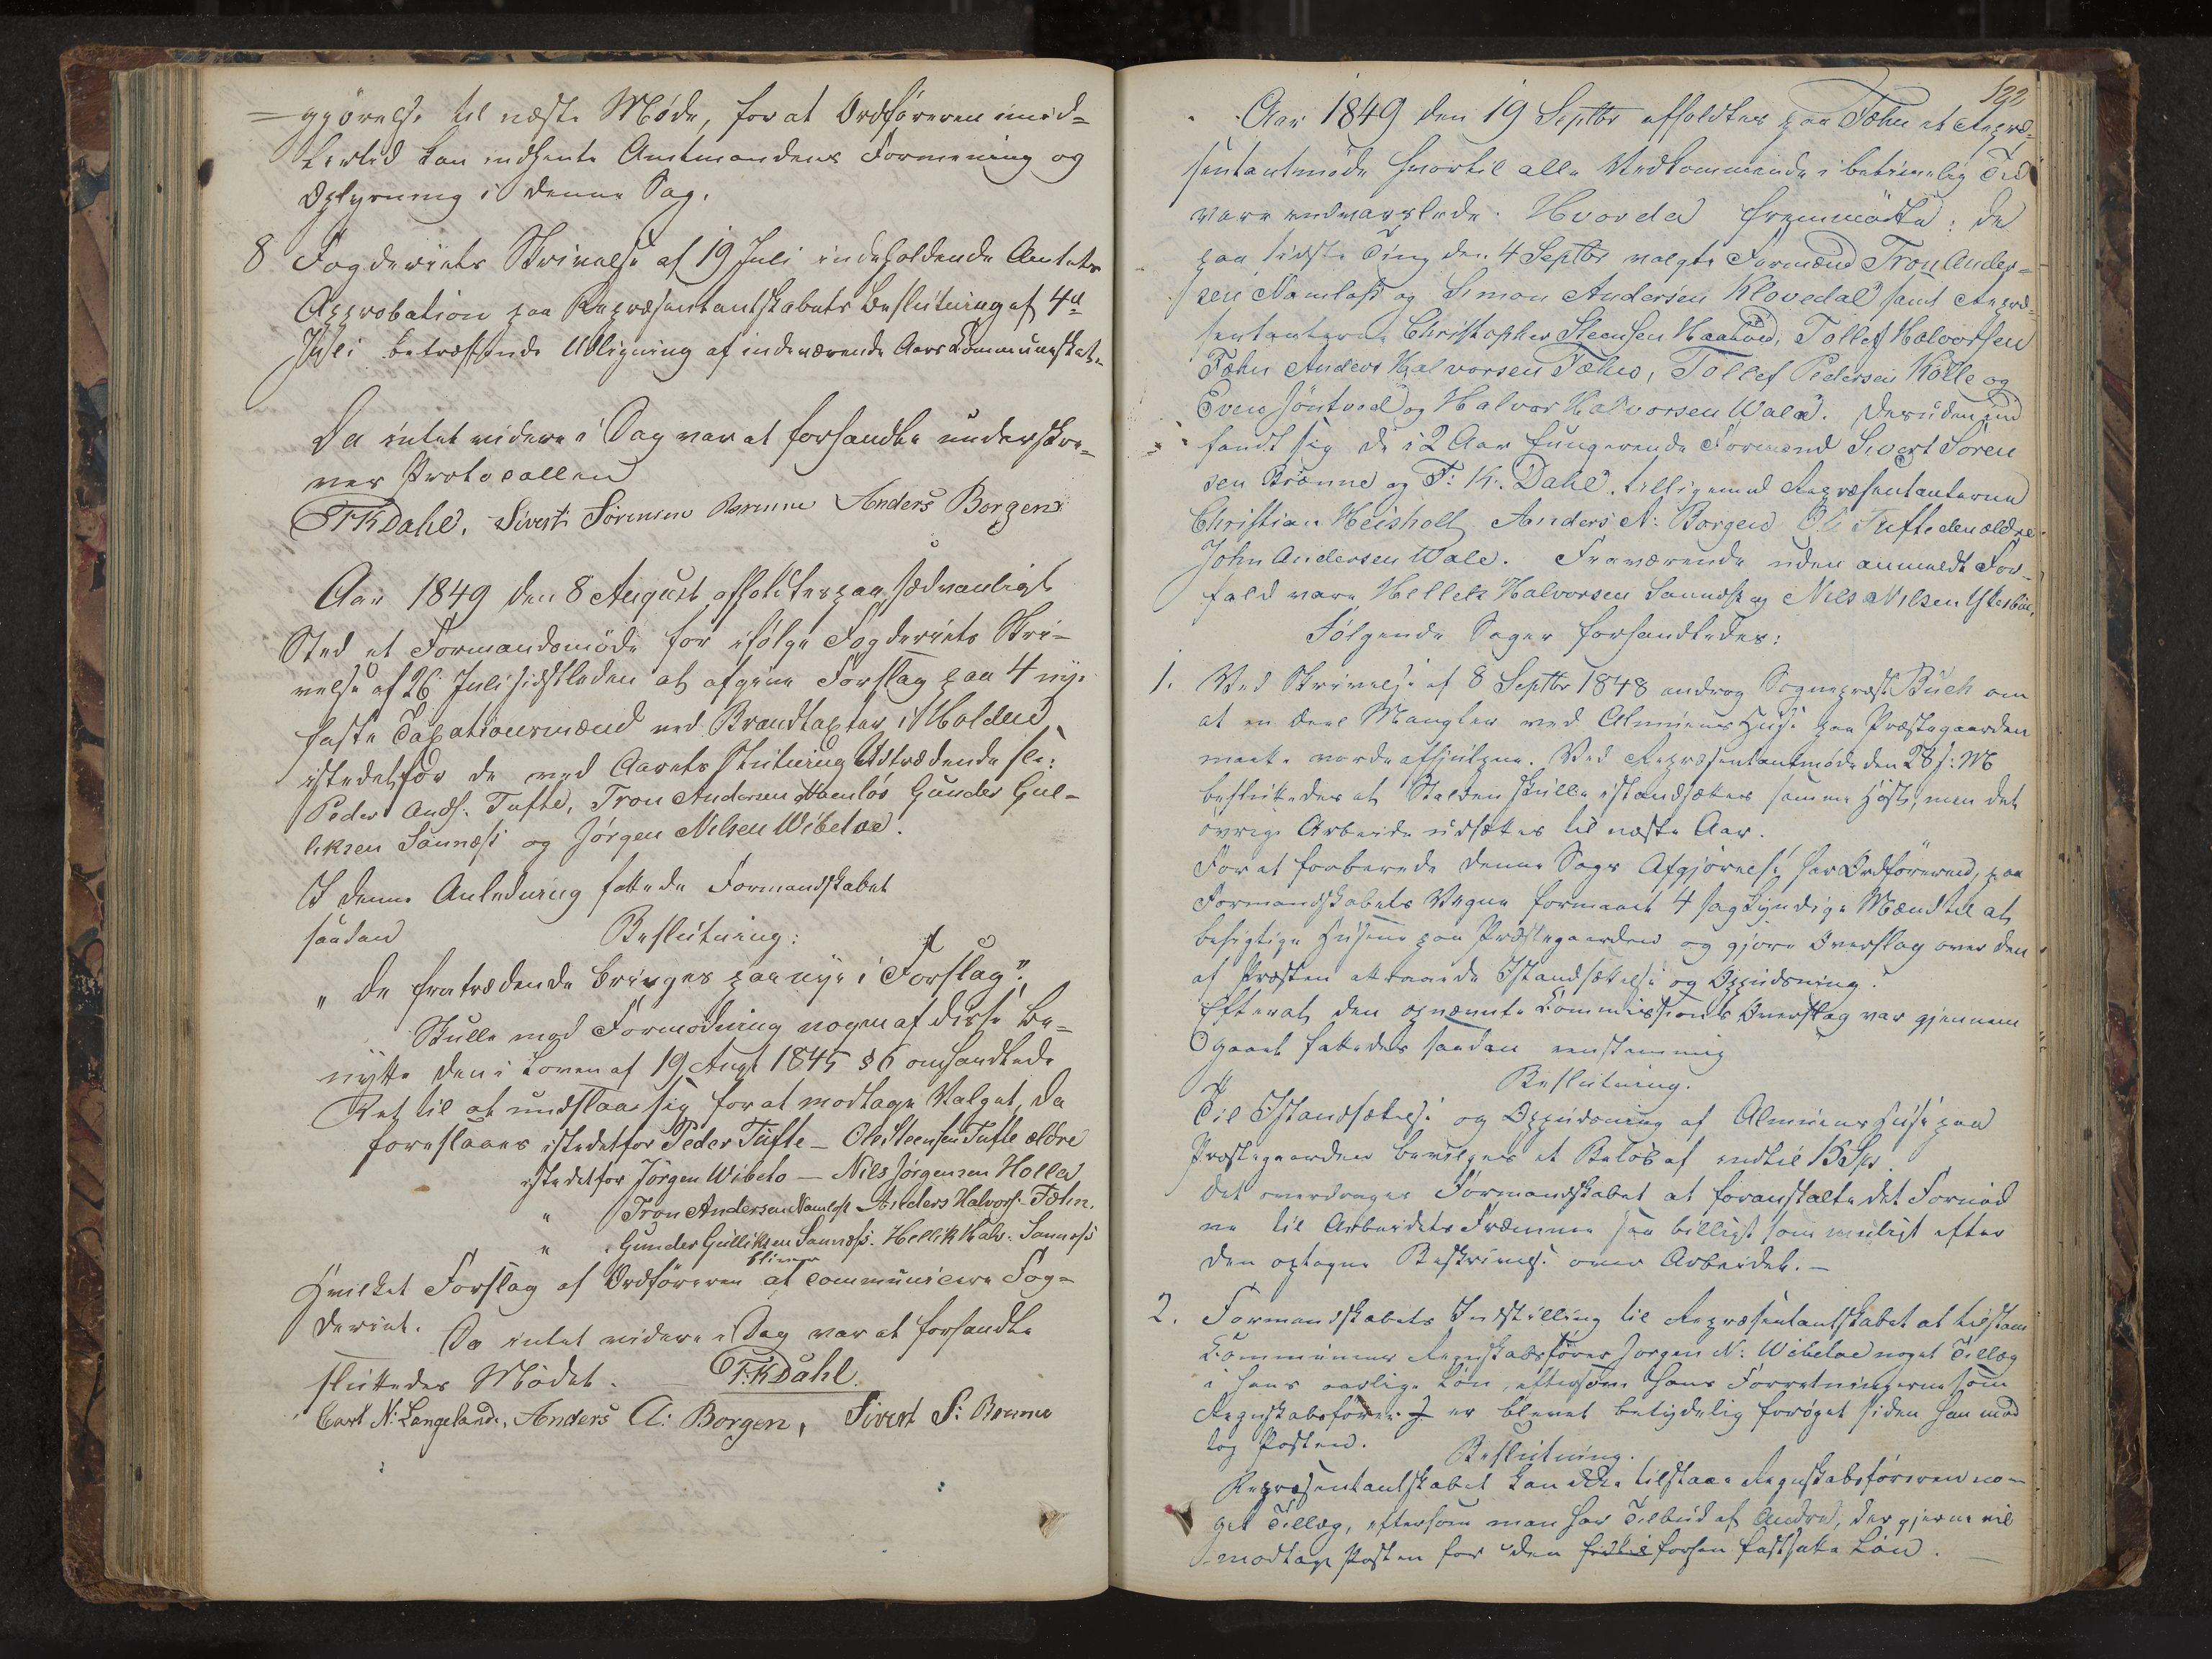 =ggjørelse til næste Møde, for at Ordføreren imid=
lertid kan indhente Amtmandens Formening og
Oplysning i denne Sag.
8 Fogderiets Skrivelse af 19 Juli indeholdende Amtets
Approbation paa Repræsentantskabets Beslutning af 4de
Juli betræffende Udligning af indeværende Aars Kommuneskat.
Da intet videre i Dag var at forhandle underskre=
ves Protocollen
FKDahl. Sivert Sørensen Anders Borgen
Aar 1849 den 8 August afholdtes paa sædvanligt
Sted et Formandsmøde for ifølge Fogderiets Skri-
velse af 26 Juli sidstleden at afgive Forslag paa 4 nye
faste Taxationsmænd ved Brandtaxter i Holden
istedetfor de ved Aarets Slutning Udtrædende
Peder Ands. Tufte, Tron Andersen Namløs Gunder Gul-
liksen Sannæss og Jørgen Nilsen Wibetoe.
I denne Anledning fattede Formandskabet
saadan Beslutning:
"De fratrædende bringes paa nye i Forslag".
Skulle mod Formodning nogen af disse be=
nytte den i Loven af 19 Augt 1845 § 6 omhandlede
Ret til at undslaae sig for at modtage Valget, da
foreslaaes istedetfor Peder Tufte - Ole Steensen Tufte ældre
istedetfor Jørgen Wibeto - Nils Jørgensen Holla
" Tron Andersen Namløs Anders Halvors. Fæhn.
" Gunder Gulliksen Sannæss. Hellik Halv. Sannæss
bliver
Hvilket Forslag af Ordføreren at communicere Fog=
deriet.
Da intet videre i Dag var at forhandle
sluttedes Mødet. F.KDahl
N: Langeland, Anders A: Borgen, Sivert S: Rønne
192
Aar 1849 den 19 Septbr afholdtes paa Fæhn et Repræ=
sentantmøde hvortil alle Vedkommende i betimelig Tid
vare indvarslede. Hvorda fremmødte: de
paa sidste Ting den 4 Septbr valgte Formænd Tron Ander=
sen Namløs og Simon Andersen Klovedal samt Repræ=
sentanterne Christopher Steensen Haatvedt, Tollef Halvorsen
Fæhn Anders Halvorsen Fæhn, Tollef Pedersen Kolle og
Even Jøntvedt og Halvor Halvorsen Wala. Desuden ind
fandt sig de i 2 Aar fungerende Formænd Sivert Søren
sen Rønne og F: K: Dahl. tilligemed Repræsentanterne
Christian Heisholt Anders A: Borgen Ole Tufte den ældre
John Andersen Wale. Fraværende uden anmeldt For-
fald vare Hellek Halvorsen Sannæss og Nils Nilsen
Følgende Sager forhandledes:
1. Ved Skrivelse af 8 Septbr 1848 androg Sognepræst Buch om
at en Deel Mangler ved Almuens Huse paa Præstegaarden
maatte vorde afhjulpne. Ved Repræsentantmøde den 28 s: M
besluttedes at Stalden skulle istandsættes samme Høst, men det
øvrige Arbeide udsættes til næste Aar.
For at forberede denne Sags Afgjørelse har Ordføreren, paa
Formandskabets Vegne formaaet 4 sagkyndige Mænd til at
besigtige Husene paa Præstegaarden og gjøre Overslag over den
af Præsten attraaede Istandsættelse og Oppudsning.
Efterat den opnævnte Commissions Overslag var gjennem
gaaet fattedes saadan eenstemmig
Beslutning.
Til Istandsættelse og Oppudsning af Almuens Huse paa
Præstegaarden bevilges et Beløb af indtil 15 Spd.
Det overdrages Formandskabet at foranstalte det Fornød
ne til Arbeidets Fremme saa billigt som muligt efter
den optagne Beskrivelse over Arbeidet. -
2. Formandskabets Indstilling til Repræsentantskabet at tilstaae
Kommunens Regnskabsfører Jørgen N: Wibetoe noget Tillæg
i hans aarlige Løn, eftersom hans Forretninger som
Regnskabsfører er blevet betydelig forøget siden han mod
tog Posten.
Beslutning.
Repræsentantskabet kan ikke tilstaae Regnskabsføreren no-
get Tillæg, eftersom man har Tilbud af Andre, der gjerne vil
modtage Posten for den forhen fastsatte Løn. -